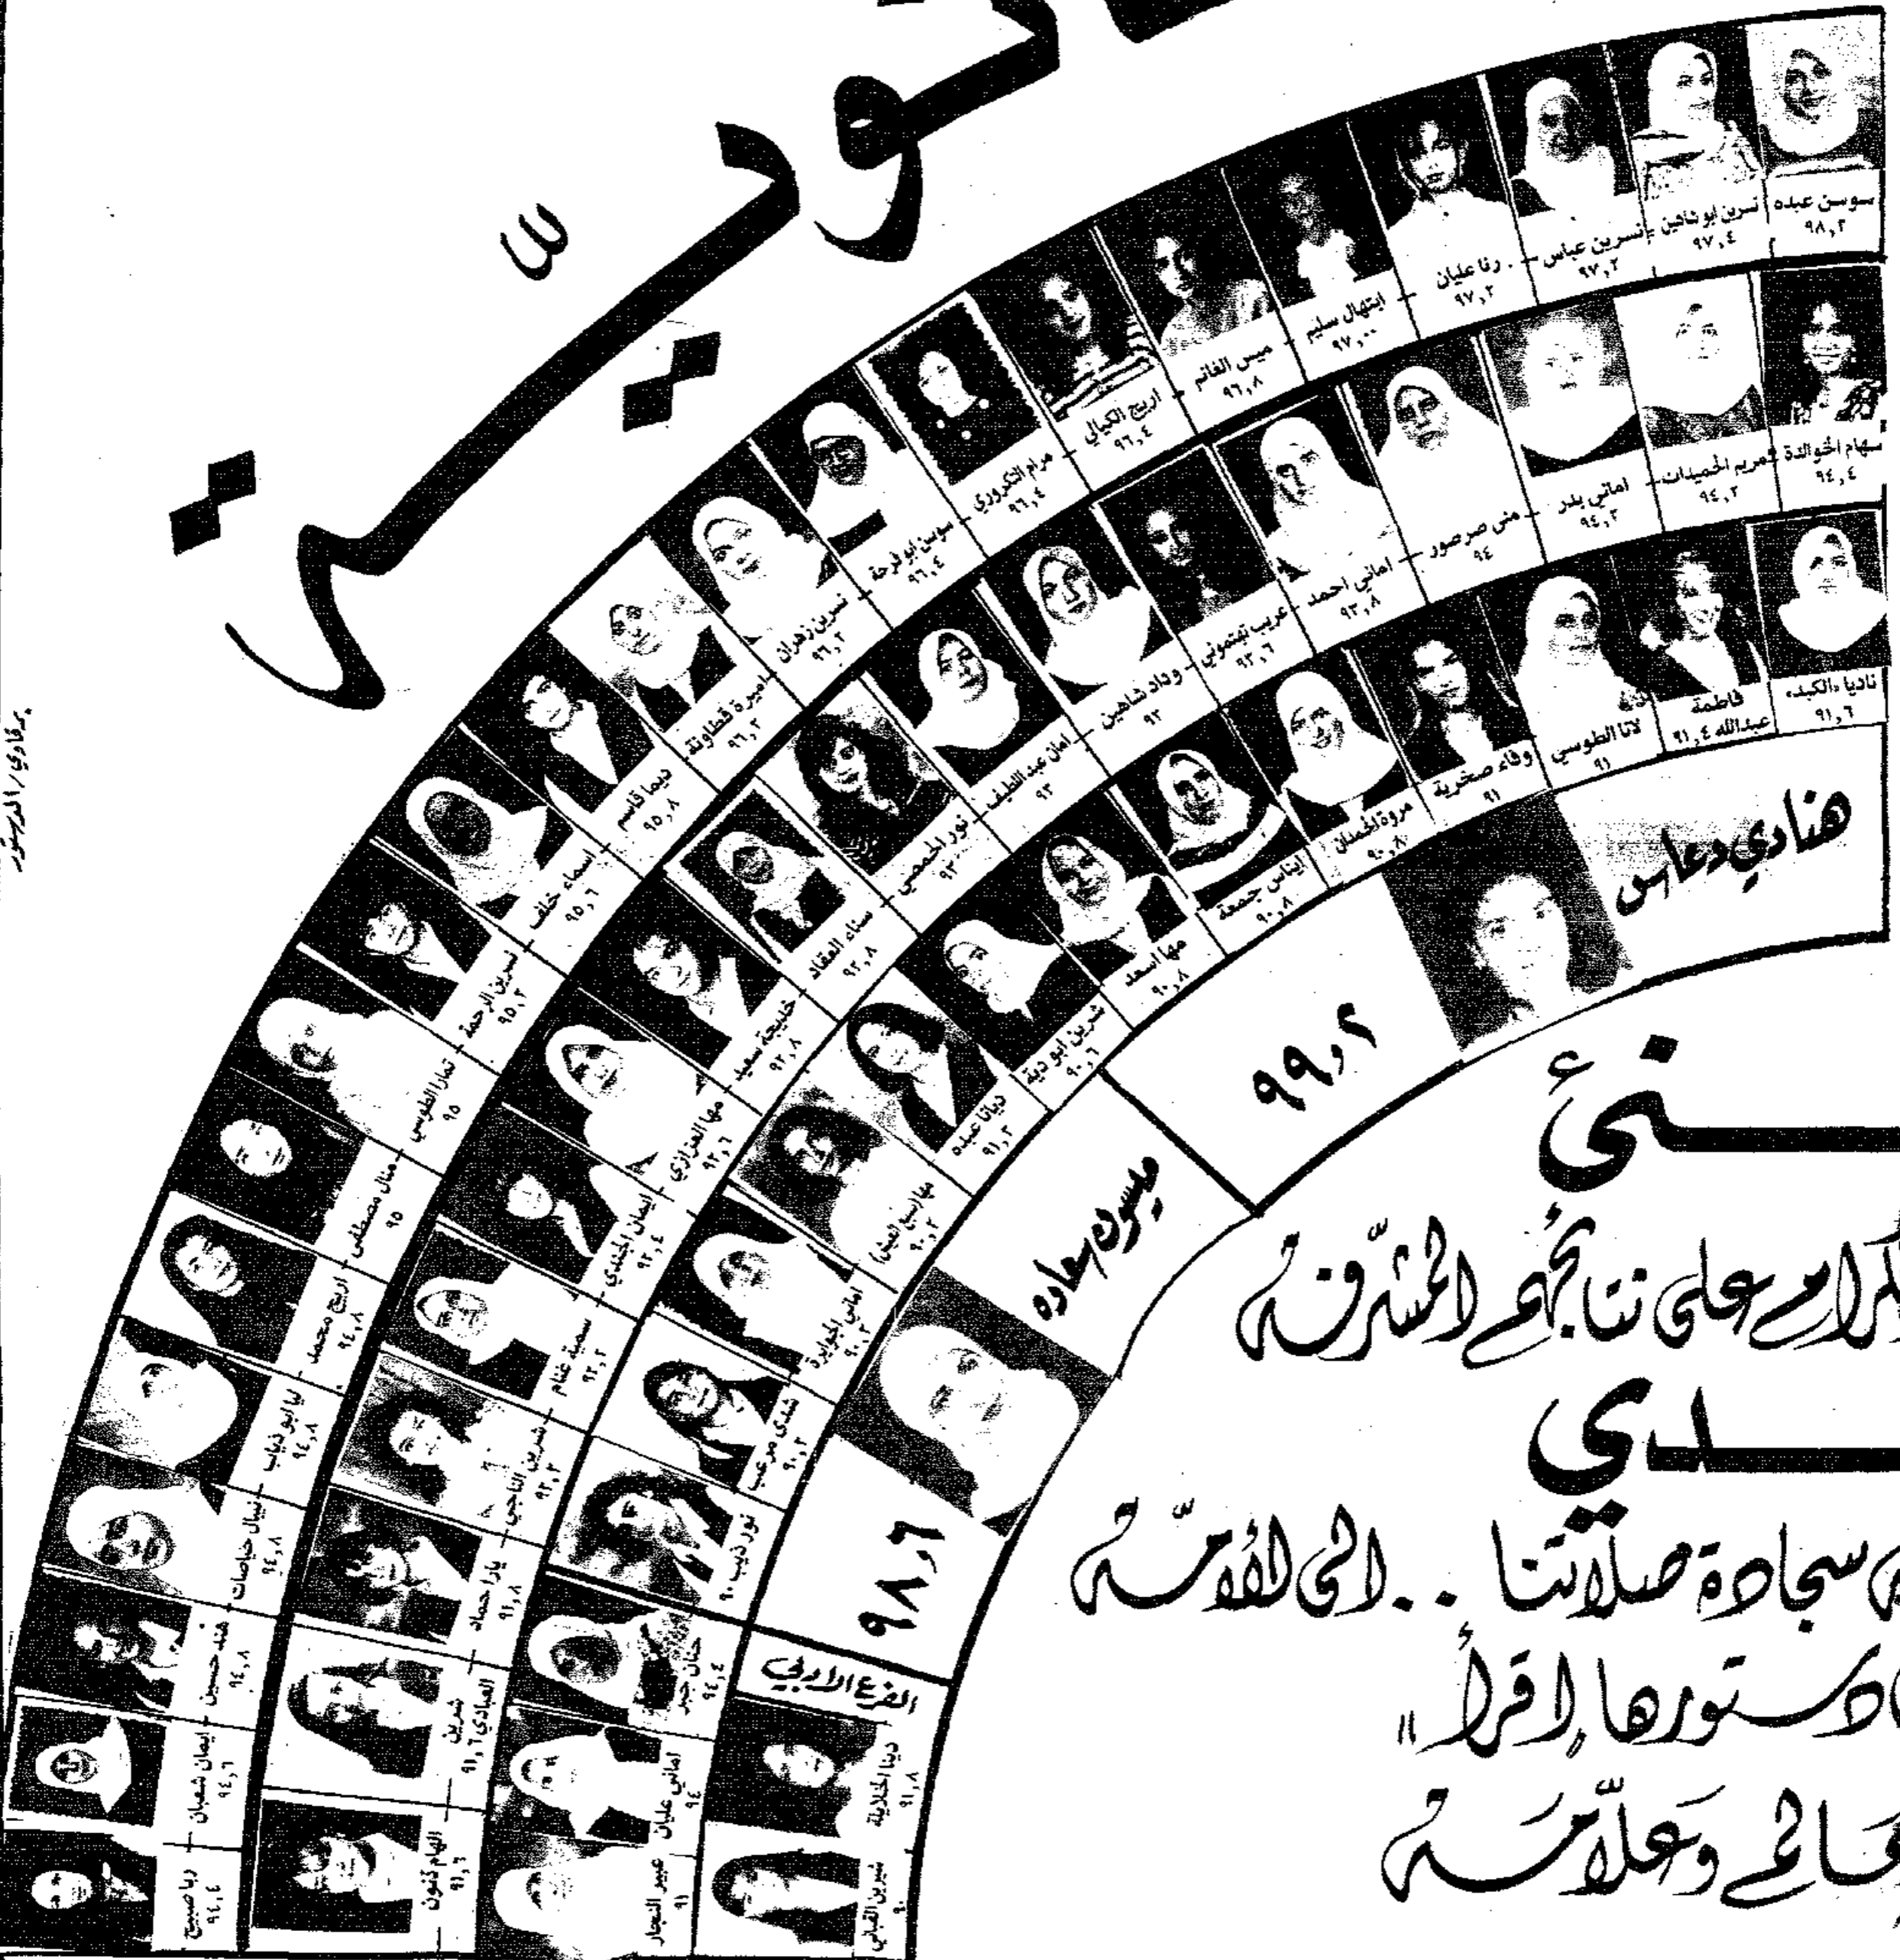 سوسن عبده
٩٨,٢
نسرين ابو شاهين
٩٧,٤
نسرين عباس
٩٧,٢
رنا عليان
٩٧,٢
ابتهال سليم
٩٧,٠٠
ميس الغانم
٩٦,٨
اريج الكيالي
٩٦,٤
مرام التكروري
٩٦,٤
سوسن ابو فرحة
٩٦,٤
نسرين زهران
٩٦,٢
اميرة قطاونة
٩٦,٢
ديما قاسم
٩٥,٨
اسماء خلف
٩٥,٦
نسرين الرحمة
٩٥,٢
تمارا الطوسي
٩٥
منال مصطفى
٩٥
اريج محمد
٩٤,٨
لينا ابو ذياب
٩٤,٨
نيبال حياصات
٩٤,٨
هند حسين
٩٤,٨
ايمان شعبان
٩٤,٦
ربا صبيح
٩٤,٤
سهام الخوالدة
٩٤,٤
مريم الحميدات
٩٤,٢
اماني بدر
٩٤,٢
منى صرصور
٩٤
اماني احمد
٩٣,٨
عريب تهتموني
٩٣,٦
وداد شاهين
٩٣
امان عبد اللطيف
٩٣
نور الحمصي
٩٣
سناء العقاد
٩٢,٨
خديجة سعيد
٩٢,٨
مها العزازي
٩٢,٦
ايمان الجندي
٩٢,٤
سمية غنام
٩٢,٢
شرين الناجي
٩٢,٢
يارا حماد
٩١,٨
شرين
العبادي ٩١,٦
الهام قنون
٩١,٦
ناديا «الكبد»
٩١,٦
فاطمة
عبدالله ٩١,٤
لانا الطوسي
٩١
وفاء صخرية
٩١
مروة الحمدان
٩٠,٨
ايناس جمعة
٩٠,٨
مها اسعد
٩٠,٨
شرين ابو دية
٩٠,٦
ديانا عبده
٩١,٢
مها
٩٠,٢
اماني الجوابرة
٩٠,٢
شذى مرعب
٩٠,٢
نور ذيب ٩٠
حنان جبر
٩٤,٤
اماني عليان
٩٤
عبير النجار
٩١
هنادي دعاس
٩٩,٢
ميسون سعاده
٩٨,٦
الفرع الادبي
دينا الحلايلة
٩١,٨
شيرين القباني
٩٠
ـنئ
على نتائجهم المشرّفة
ـدي
سجادة صلاتنا .. الى الأمّة
دستورها إقرأ "
وعلّامة